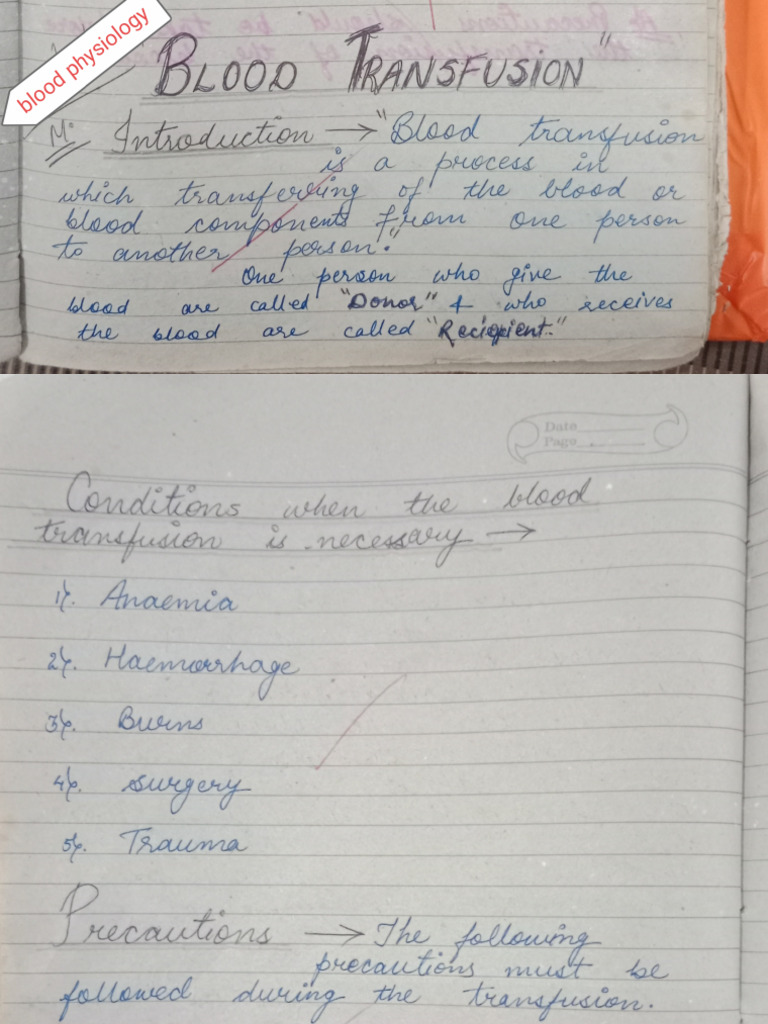 blood physiology
BLOOD TRANSFUSION"
Introduction → "Blood transfusion
is a process in
which transferring of the blood or
blood components from one person
to another person."
One person who give the
blood are called "Donor" & who receives
the blood are called "Recipient."
Date
Page
Conditions when the blood
transfusion is necessary →
1). Anaemia
2). Haemorrhage
3). Burns
4). surgery
5). Trauma
Precautions → The following
precautions must be
followed during the transfusion.